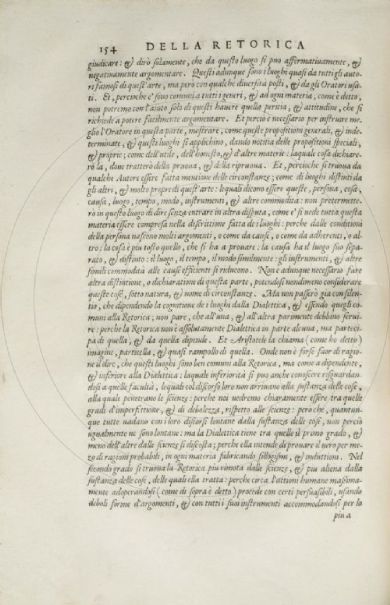 154 DELLA RETORICA
giudicare: & dirò solamente, che da questo luogo si può affermativamente, &
negatiuamente argomentare. Questi adunque sono i luoghi quasi da tutti gli auto-
ri famosi di quest'arte, ma però con qualche diuersità posti, & da gli Oratori usa-
ti. Et, perinche e' sono communi a tutti i generi, & ad ogni materia, come è detto,
non potremo con l'aiuto solo di questi hauere quella peritia, & attitudine, che si
richiede a potere facilmente argomentare. Et perciò è necessario per instruire me-
glio l'Oratore in questa parte, mostrare, come queste propositioni generali, & inde-
terminate, & questi luoghi si applichino, dando notitia delle propositioni speciali,
& proprie; come dell'utile, dell'honesto, & d'altre materie: laqual cosa dichiare-
rò la, doue tratterò della pruoua, & della riprouua. Et, perinche si truoua da
qualche Autore essere fatta mentione delle circunstanze; come di luoghi distinti da
gli altri, & molto proprii di quest'arte: lequali dicono essere queste, persona, cosa,
causa, luogo, tempo, modo, instrumenti, & altre commodità: non pretermette-
rò in questo luogo di dire senza entrare in altra disputa, come e' si uede tutta questa
materia essere compresa nella discrittione fatta de i luoghi: perche dalle conditioni
della persona nascono molti argomenti, o come da causa, o come da adherenti, o al-
tro: la cosa è più tosto quello, che si ha a prouare: la causa ha'l luogo suo sepa-
rato, & distinto: il luogo, il tempo, il modo similmente: gli instrumenti, & altre
simili commodità alle cause efficienti si riducono. Non è adunque necessario fare
altra distintione, o dichiaratione di questa parte, potendosi nondimeno considerare
queste cose, sotto natura, & nome di circonstanze. Ma non passerò già con silen-
tio, che dipendendo la cognitione de i luoghi dalla Dialettica, & essendo quegli co-
muni alla Retorica, non pare, che all'una, & all'altra parimente debbono serui-
re: perche la Retorica non è assolutamente Dialettica in parte alcuna, ma parteci-
pa di quella, & da quella dipende. Et Aristotele la chiama (come ho detto)
imagine, particella, & quasi rampollo di quella. Onde non è forse fuor di ragio-
ne il dire, che questi luoghi sono ben comuni alla Retorica, ma come a dipendente,
& inferiore alla Dialettica: laquale inferiorità si può anche conoscere risguardan-
dosi a quelle facultà, lequali col discorso loro non arriuano alla sustanza delle cose,
alla quale penetrano le scienze: perche noi uedremo chiaramente essere tra quelle
gradi d'imperfettione, & di debolezza, rispetto alle scienze: però che, quantun-
que tutte uadano con i loro discorsi lontane dalla sustanza delle cose, non perciò
ugualmente ne sono lontane: ma la Dialettica tiene tra quelle il primo grado, &
meno dell'altre dalle scienze si discosta; perche ella intende di prouare il uero per me-
zo di ragioni probabili, in ogni materia fabricando sillogismi, & induttioni. Nel
secondo grado si truoua la Retorica più rimota dalle scienze, & più aliena dalla
sustanza delle cose, delle quali ella tratta: perche circa l'attioni humane massima-
mente adoperandosi (come di sopra è detto) procede con certi persuasibili, usando
deboli forme d'argomenti, & con tutti i suoi instrumenti accommodandosi per lo
più a